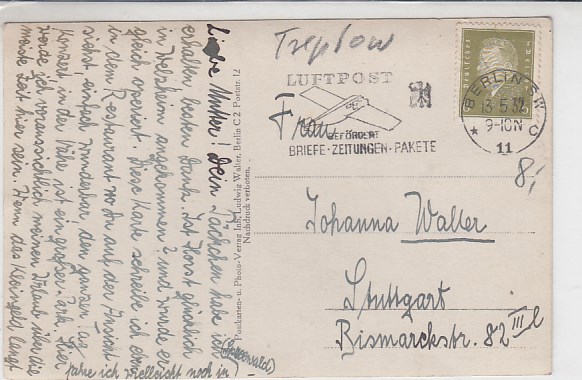 Liebe Mutter! Dein Päckchen habe ich
erhalten besten Dank. Ist Horst glücklich
in Welzheim angekommen? und wurde er
gleich operiert. Diese Karte schreibe ich eben
in dem Restaurant wo Du auf der Ansicht
siehst, einfach wunderbar, den ganzen Tag
Konzert in der Nähe ist ein großer Park. Hier
werde ich voraussichtlich meinen Urlaub über die
meiste Zeit hier sein. Wenn das Kleingeld langt
fahre ich vielleicht noch in
(Spreewald)
Postkarten-u. Photo-Verlag Inh. Ludwig Walter, Berlin C 2 Poststr. 12
Nachdruck verboten.
Treptow
LUFTPOST
BEFÖRDERT
BRIEFE·ZEITUNGEN·PAKETE
BERLIN SW
13.5.32
9-10N
* 11 C
8,-
Frau
Johanna Waller
Stuttgart
Bismarckstr. 82 III l